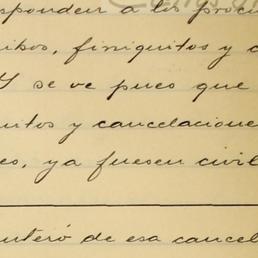 sponden a los procu
ibos, finiquitos y c
Y se ve pues que
uitos y cancelacione
es, ya fuesen civil
nteró de esa cancel